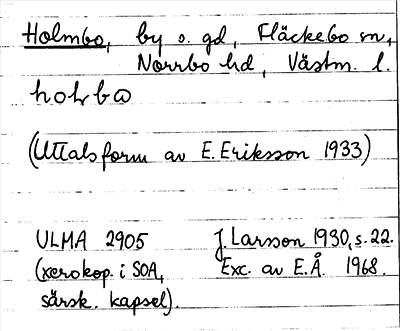 Holmbo, by o. gd, Fläckebo sn,
Norrbo hd, Västm. l.
(Uttalsform av E. Eriksson 1933)
ULMA 2905 J. Larsson 1930, s. 22.
(xerokop. i SOA, Exc. av E.Å. 1968.
särsk. kapsel).